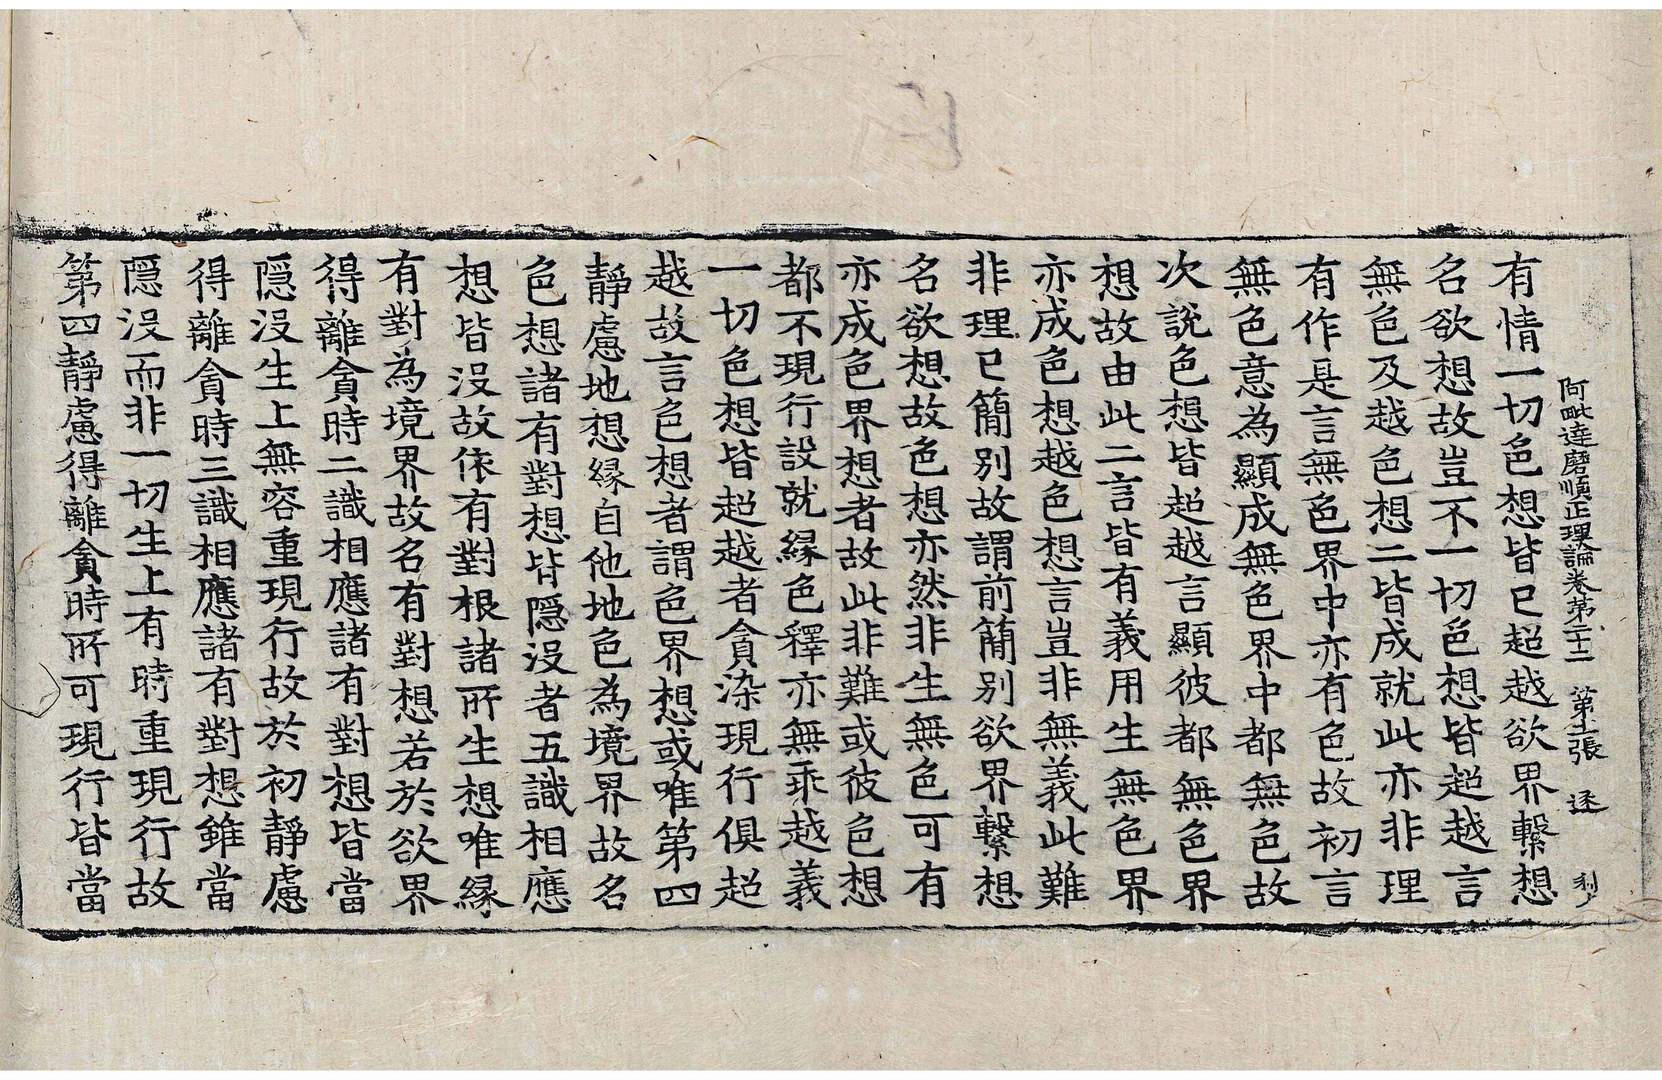 阿毗達磨順正理論卷第二十一 第十二張 逐 利
有情一切色想皆已超越欲界繫想
名欲想故豈不一切色想皆超越言
無色及越色想二皆成就此亦非理
有作是言無色界中亦有色故初言
無色意為顯成無色界中都無色故
次說色想皆超越言顯彼都無色界
想故由此二言皆有義用生無色界
亦成色想越色想言豈非無義此難
非理已簡別故謂前簡別欲界繫想
名欲想故色想亦然非生無色可有
亦成色界想者故此非難或彼色想
都不現行設就緣色釋亦無乖越義
一切色想皆超越者貪染現行俱超
越故言色想者謂色界想或唯第四
靜慮地想緣自他地色為境界故名
色想諸有對想皆隱沒者五識相應
想皆沒故依有對根諸所生想唯緣
有對為境界故名有對想若於欲界
得離貪時二識相應諸有對想皆當
隱沒生上無容重現行故於初靜慮
得離貪時三識相應諸有對想雖當
隱沒而非一切生上有時重現行故
第四靜慮得離貪時所可現行皆當